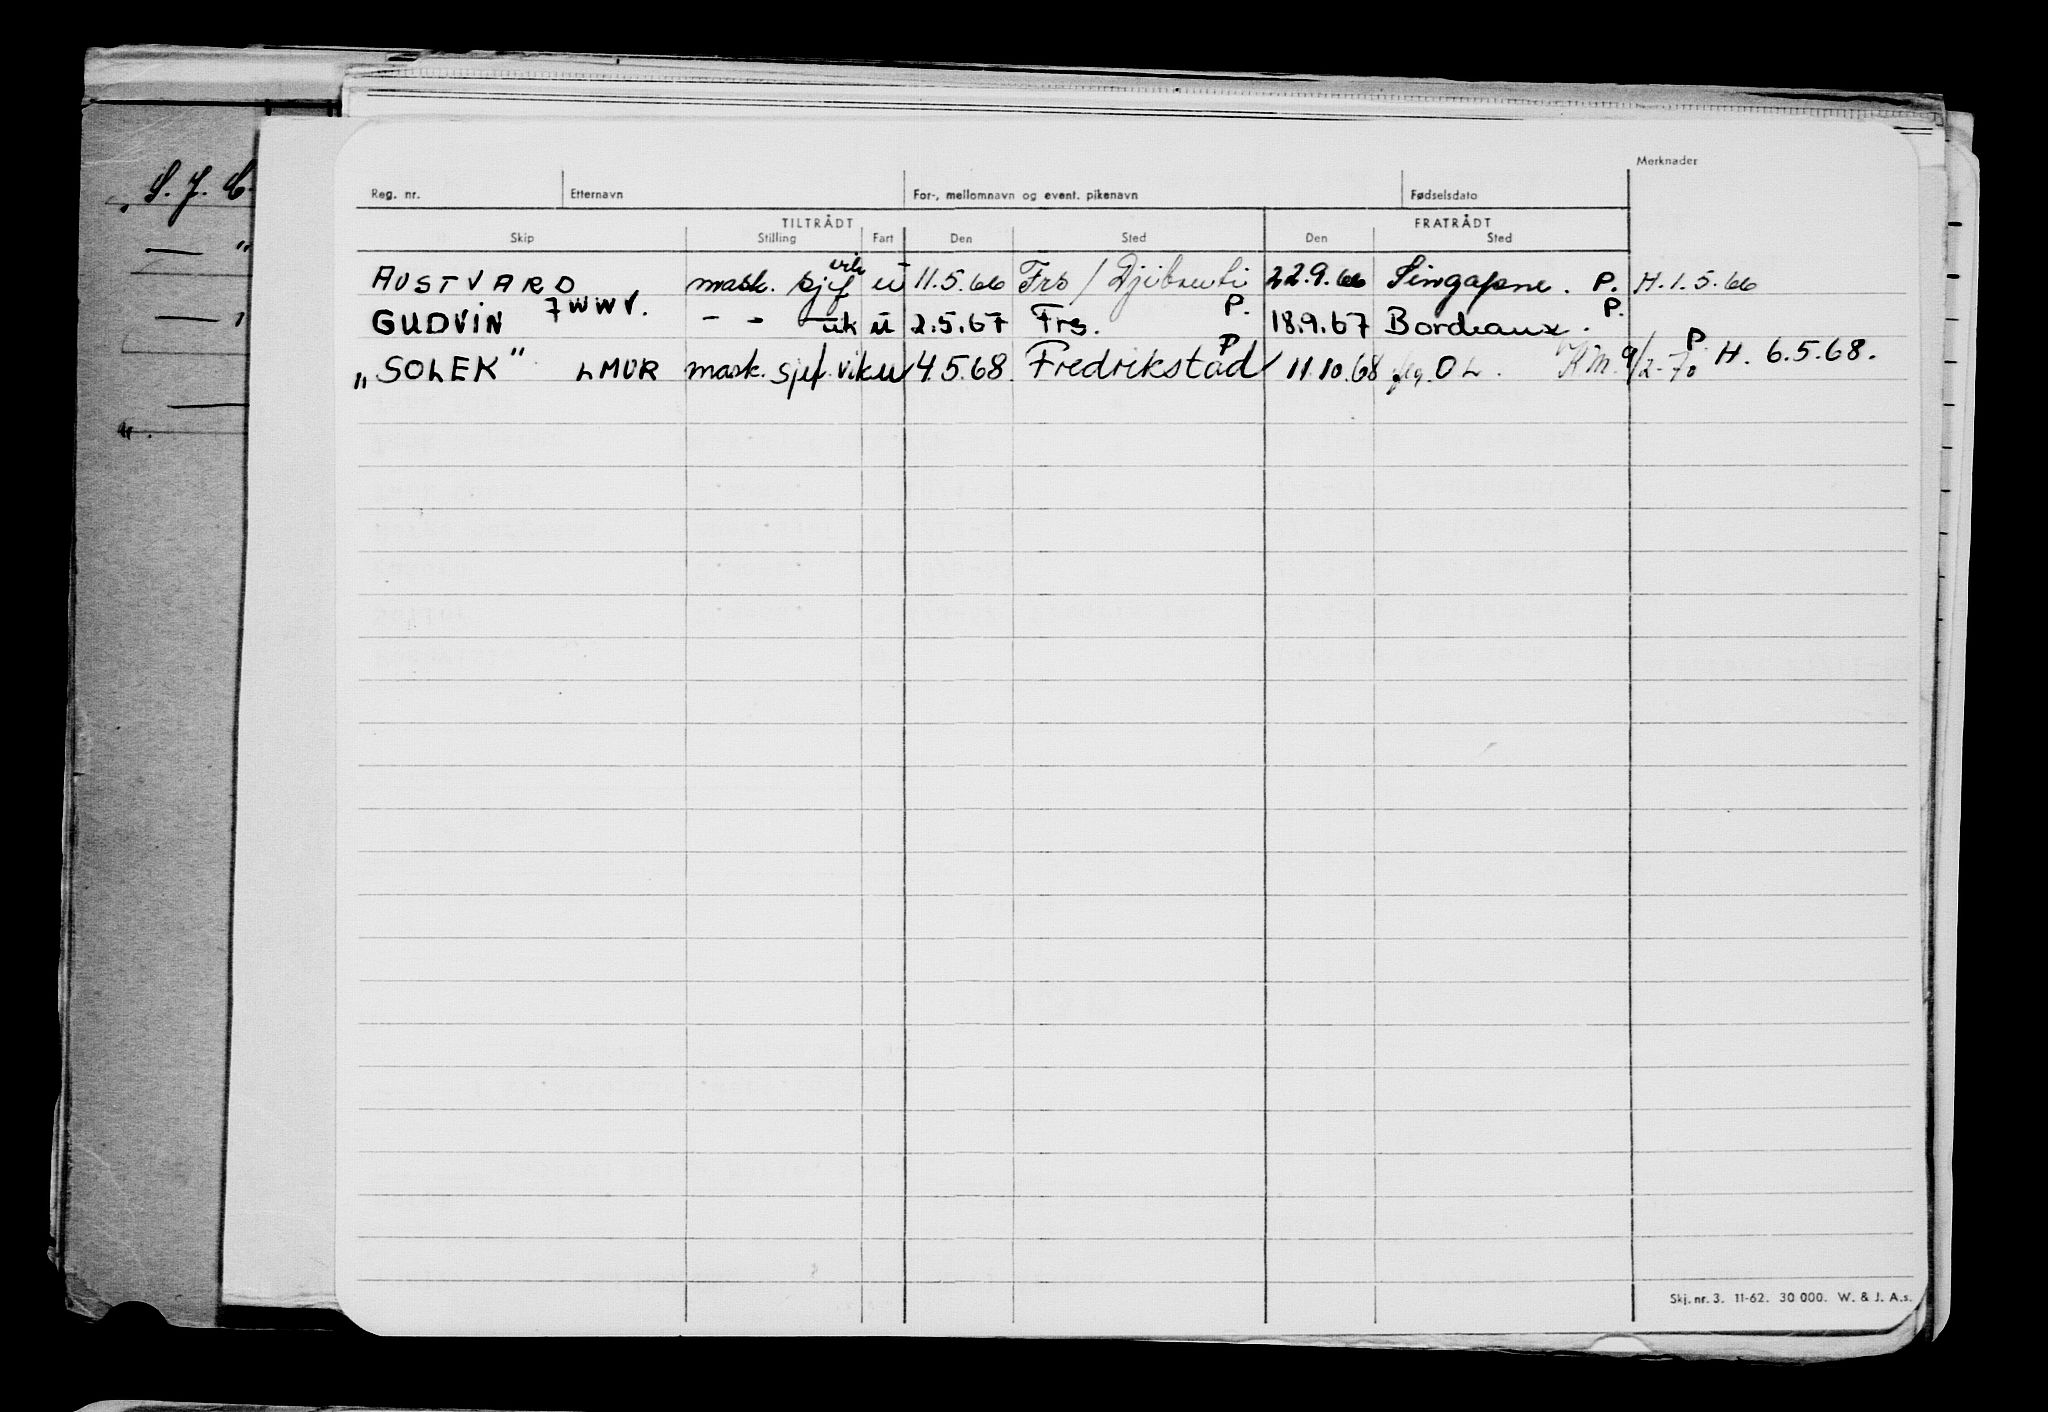 S. J. C.
Merknader
Reg. nr. Etternavn For-, mellomnavn og event. pikenavn Fødselsdato
TILTRÅDT FRATRÅDT
Skip Stilling Fart Den Sted Den Sted
AUSTVARD mask. sjef vik u 11.5.66 Frs / Djibouti 22.9.66 Singapore. P. H. 1.5.66
GUDVIN 7WWV. - - - vik u 2.5.67 Frs. P. 18.9.67 Bordeaux. P.
"SOLEK" LMUR mask. sjef. vik u 4.5.68 Fredrikstad P 11.10.68 OL. KM. 9/2-70 P H. 6.5.68.
Skj. nr. 3. 11-62. 30 000. W. & J. A.s.